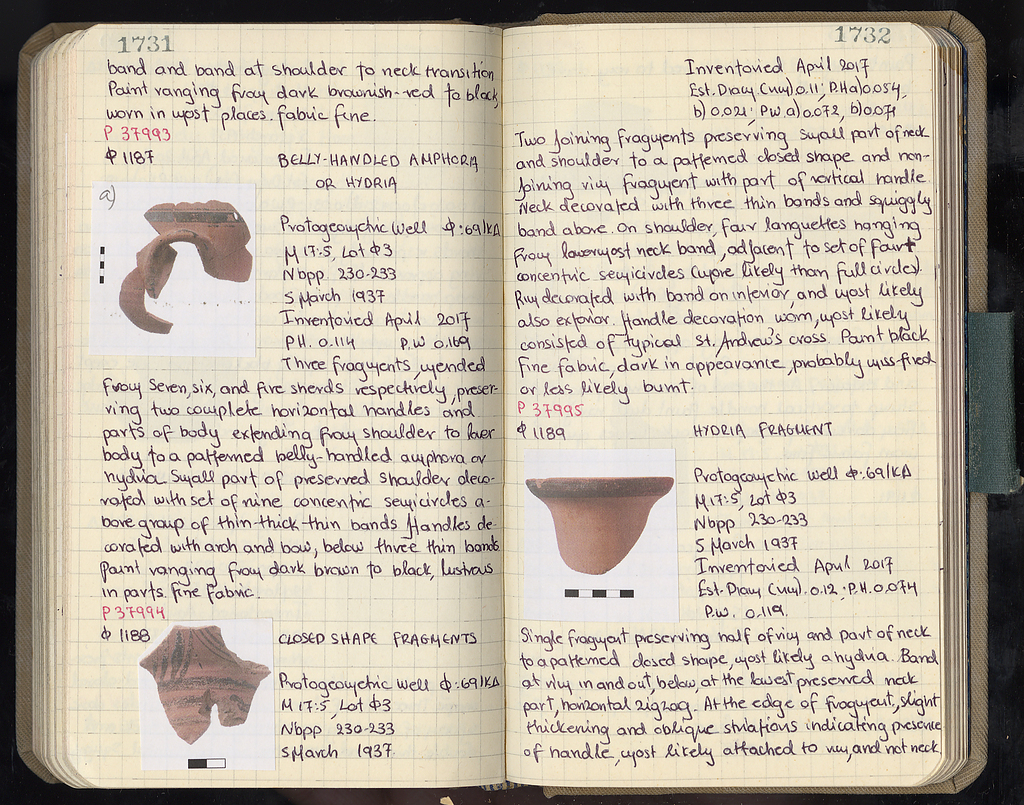 1731
band and band at shoulder to neck transition
Paint ranging from dark brownish-red to black,
worn in most places. Fabric fine.
P 37993
Φ 1187
BELLY-HANDLED AMPHORA
OR HYDRIA
a)
Protogeometric Well Φ:69/ΚΔ
M 17:5, Lot Φ3
Nbpp 230-233
5 March 1937
Inventoried April 2017
P.H. 0.114 P.W 0.169
Three fragments, mended
from seven, six, and five sherds respectively, preser-
ving two complete horizontal handles and
parts of body extending from shoulder to lower
body to a patterned belly-handled amphora or
hydria. Small part of preserved shoulder deco-
rated with set of nine concentric semicircles a-
bove group of thin-thick-thin bands. Handles de-
corated with arch and bow, below three thin bands.
Paint ranging from dark brown to black, lustrous
in parts. Fine fabric.
P 37994
Φ 1188
CLOSED SHAPE FRAGMENTS
Protogeometric Well Φ:69/ΚΔ
M 17:5, Lot Φ3
Nbpp 230-233
5 March 1937
1732
Inventoried April 2017
Est. Diam (rim) 0.11; P.H a) 0.054,
b) 0.021; P.W. a) 0.072, b) 0.071
Two joining fragments preserving small part of neck
and shoulder to a patterned closed shape and non-
joining rim fragment with part of vertical handle
Neck decorated with three thin bands and squiggly
band above. On shoulder, four languettes hanging
from lowermost neck band, adjacent to set of four+
concentric semicircles (more likely than full circles).
Rim decorated with band on interior, and most likely
also exterior. Handle decoration worn, most likely
consisted of typical St. Andrew's cross. Paint black
Fine fabric, dark in appearance, probably miss-fired
or less likely burnt.
P 37995
Φ 1189
HYDRIA FRAGMENT
Protogeometric Well Φ:69/ΚΔ
M 17:5, Lot Φ3
Nbpp 230-233
5 March 1937
Inventoried April 2017
Est. Diam (rim) 0.12; P.H. 0.074
P.W. 0.119.
Single fragment preserving half of rim and part of neck
to a patterned closed shape, most likely a hydria. Band
at rim in and out, below, at the lowest preserved neck
part, horizontal zigzag. At the edge of fragment, slight
thickening and oblique striations indicating presence
of handle, most likely attached to rim, and not neck